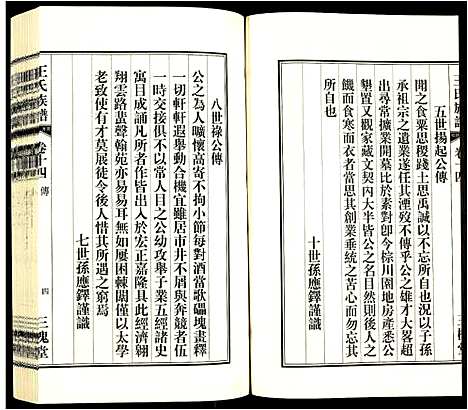 王氏族譜
五世揚起公傳
聞之食粟思稷踐土思禹誠以不忘其初也況以子孫
承祖宗之遺業遂任湮沒不傳乎公之雄才大畧超
出尋常擴業開墓比於素封卽今棕川田地房產悉公
墾置又觀家藏文契內大半皆公之名目然則後人
饑而食寒而衣者當思其創業垂統之苦心而勿忘
所自也
十世孫應鐸謹識
八世祿公傳
公之為人曠懷高寄不拘小節每對酒當歌磈塊盡釋
一切軒軒遐舉動合機宜雖居市井不屑與奔競者伍
一時交接俱不以常人目之公幼攻舉子業五經諸史
寓目成誦凡所著作皆出入於宏正嘉隆具此經濟翱
翔雲路蜚聲翰苑亦易易耳無如屢困棘闈僅以太學
老致使有才莫展徒令後人惜其所遇之窮焉
七世孫應鐸謹識
王氏族譜
卷十四
傳
四
三槐堂